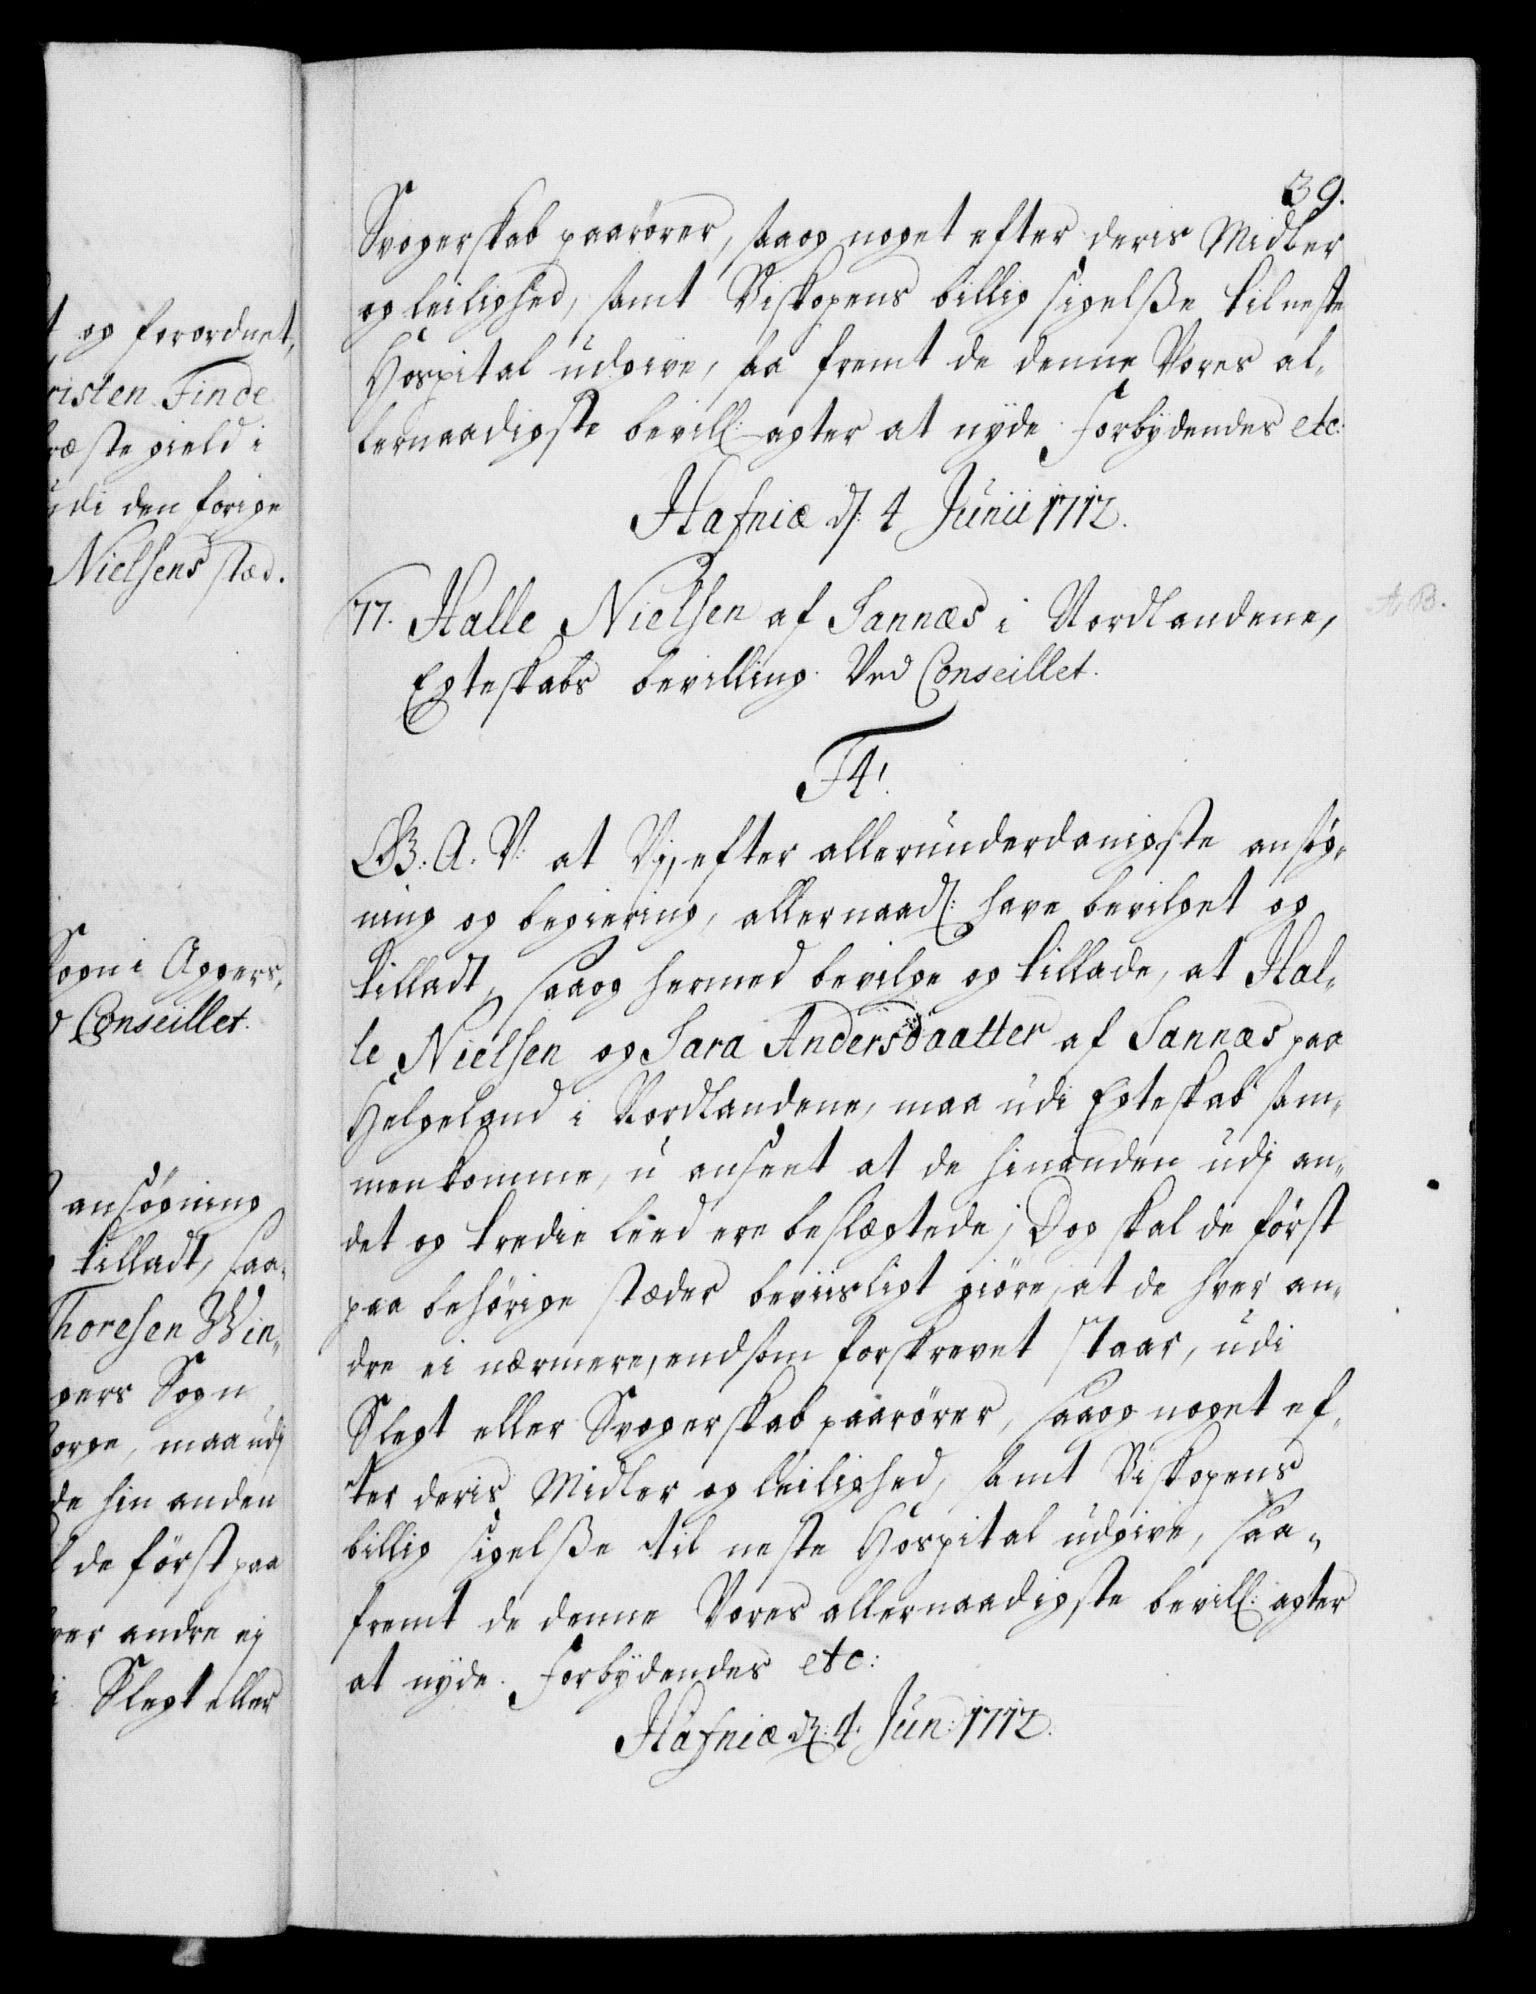 39.
Svogerskab paarører, saaog noget efter deris Midler
og leilighed, samt Biskopens billig sigelße til neste
Hospital udgive, saa fremt de denne Vores al-
lernaadigste bevill: agter at nyde. Forbydendes etc:
Hafniæ d: 4 Junii 1712.
77. Halle Nielsen af Sannæs i Nordlandene,
Egteskabs bevilling. Ved Conseillet.
F4!
G: A. V: at Vj, efter allerunderdanigste ansøg-
ning og begiering, allernaad: have bevilget og
tilladt, saaog hermed bevilge og tillade, at Hal-
le Nielsen og Sara Andersdaatter af Sannæs paa
Helgeland i Nordlandene, maa udi Egteskab sam-
menkomme, u anseet at de hinanden udj an-
det og tredie leed ere beslægtede; Dog skal de først
paa behørige stæder beviisligt giøre, at de hver an-
dre ei nærmere, end som forskrevet staar, udi
Slegt eller Svogerskab paarører, saaog noget ef-
ter deris Midler og leilighed, samt Biskopens
billig sigelße til neste Hospital udgive, saa-
fremt de denne Vores allernaadigste bevill: agter
at nyde. Forbydendes etc:
Hafniæ d: 4. Jun: 1712.
A. B.
og forordnet,
risten Finde
ræstegield i
udi den forige
Nielsens stæd.
Sogn i Aggers-
Conseillet.
ansøgning
tilladt, saa-
Thoresen Win-
gers Sogn
orge, maa udj
de hin anden
de først paa
ver andre ej
i Slegt eller